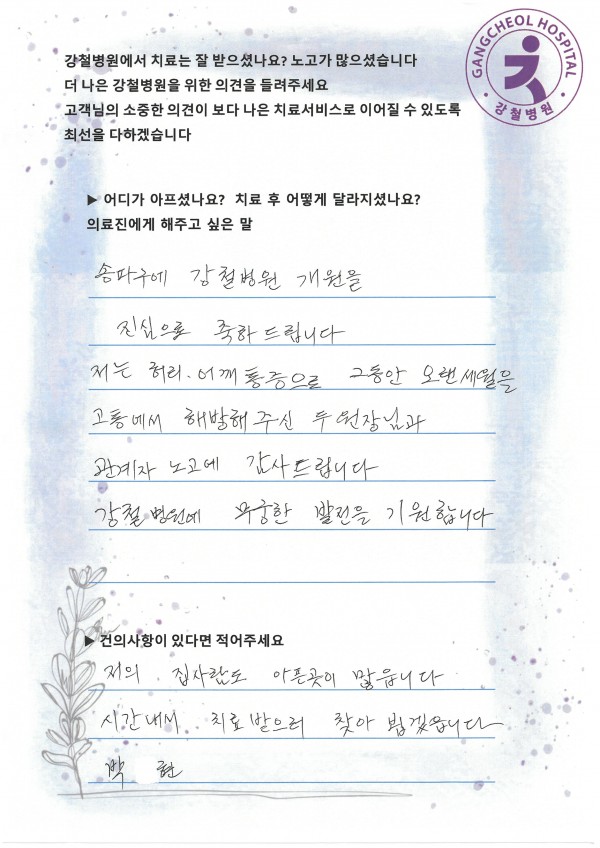 GANGCHEOL HOSPITAL
강철병원
강철병원에서 치료는 잘 받으셨나요? 노고가 많으셨습니다
더 나은 강철병원을 위한 의견을 들려주세요
고객님의 소중한 의견이 보다 나은 치료서비스로 이어질 수 있도록
최선을 다하겠습니다
▶ 어디가 아프셨나요? 치료 후 어떻게 달라지셨나요?
의료진에게 해주고 싶은 말
송파구에 강철병원 개원을
진심으로 축하드립니다
저는 허리.어깨통증으로 그동안 오랜세월을
고통에서 해방해주신 두원장님과
관계자 노고에 감사드립니다
강철병원에 무궁한 발전을 기원합니다
▶ 건의사항이 있다면 적어주세요
저의 집사람도 아픈곳이 많읍니다
시간내서 치료받으러 찾아 뵙겠읍니다